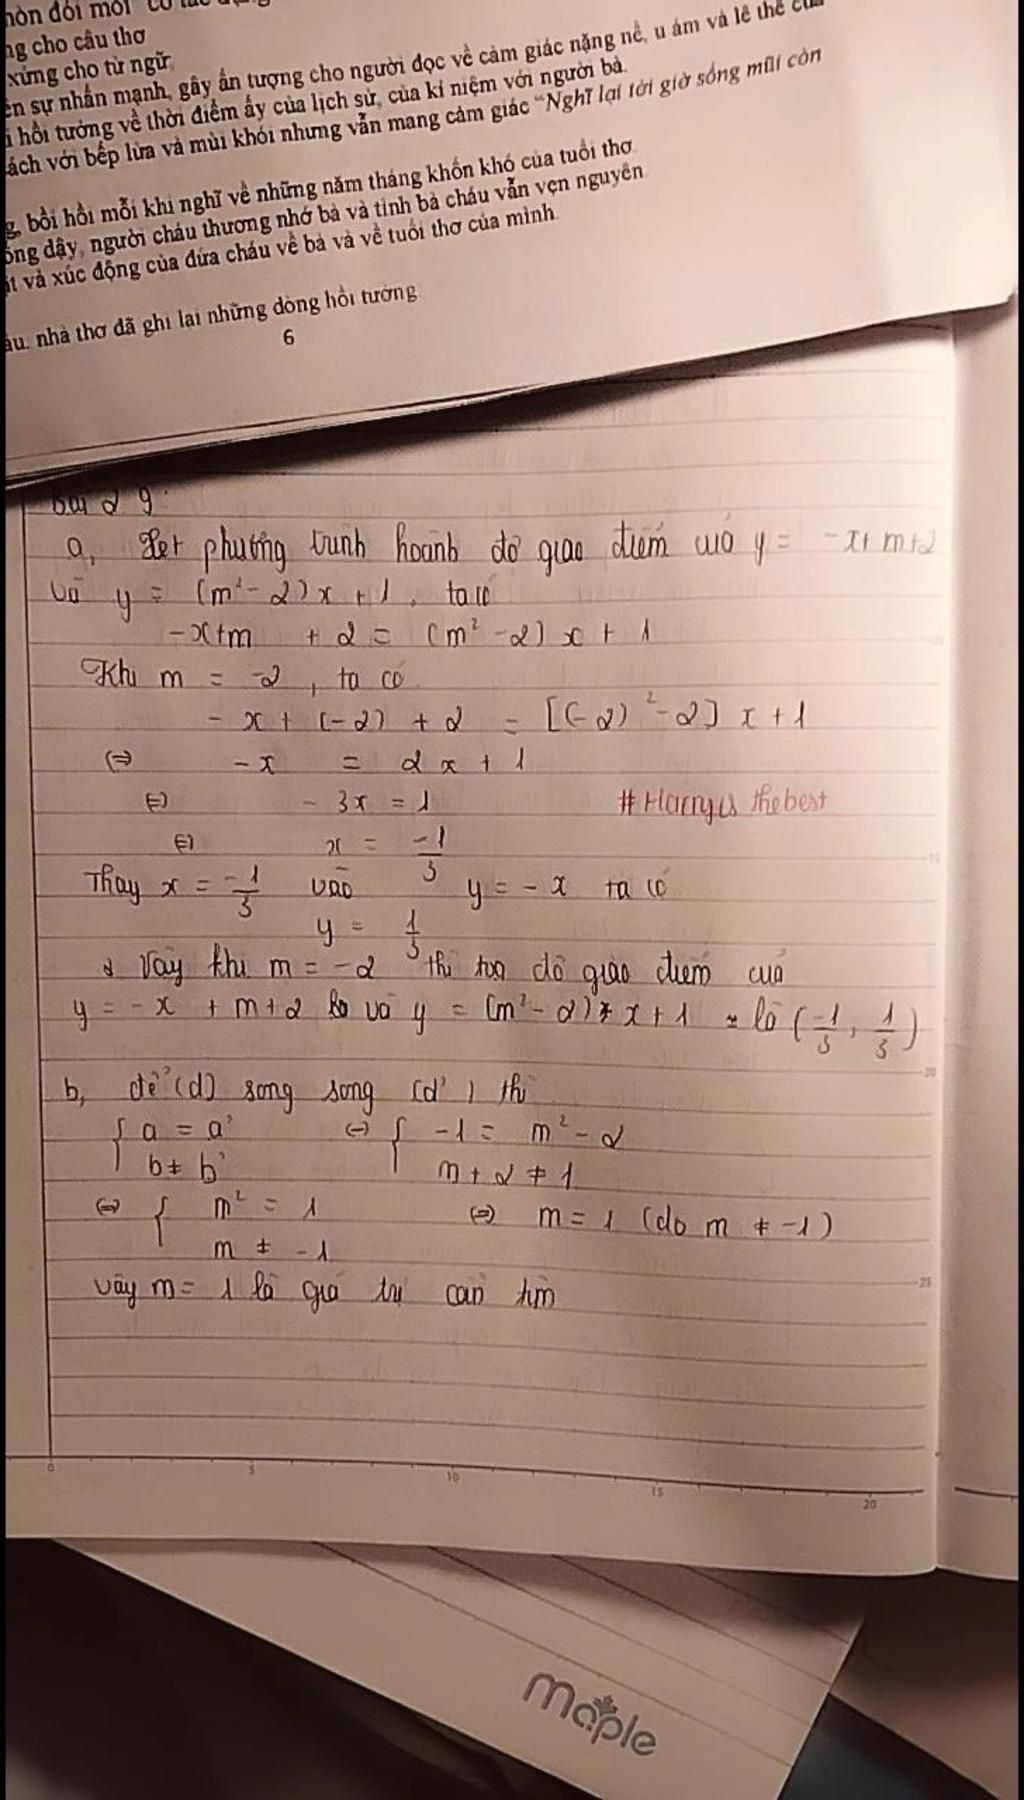 ng cho câu thơ
xứng cho từ ngữ
ên sự nhấn mạnh, gây ấn tượng cho người đọc về cảm giác nặng nề, u ám và lê thê
i hồi tưởng về thời điểm ấy của lịch sử, của kỉ niệm với người bà.
ách với bếp lửa và mùi khói nhưng vẫn mang cảm giác “Nghĩ lại tới giờ sống mũi còn
g, bồi hồi mỗi khi nghĩ về những năm tháng khốn khó của tuổi thơ
ống dậy, người cháu thương nhớ bà và tình bà cháu vẫn vẹn nguyên
it và xúc động của đứa cháu về bà và về tuổi thơ của mình.
âu. nhà thơ đã ghi lại những dòng hồi tưởng
6
Bài 29
a, Xét phương trình hoành độ giao điểm của y = -x + m+2
và y = (m² - 2)x + 1, ta có
-x+m + 2 = (m² - 2) x + 1
Khi m = -2, ta có
- x + (-2) + 2 = [(-2)² - 2] x + 1
⇔ -x = 2x + 1
⇔ - 3x = 1 #Harry is the best
⇔ x = -1/3
Thay x = -1/3 vào y = - x ta có
y = 1/3
Vậy khi m = -2 thì tọa độ giao điểm của
y = - x + m+2 và y = (m² - 2) x + 1 là (-1/3, 1/3)
b, để (d) song song (d') thì
{ a = a' ⇔ { -1 = m² - 2
b ≠ b' m + 2 ≠ 1
⇔ { m² = 1 ⇔ m = 1 (do m ≠ -1)
m ≠ -1
Vậy m = 1 là giá trị cần tìm
15
20
25
0 5 10 15 20
maple